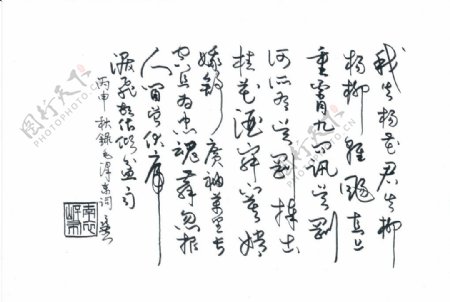 我失杨花君失柳
杨柳轻飏直上
重霄九问讯吴刚
何所有吴刚捧出
桂花酒寂寞嫦
娥舒广袖万里长
空且为忠魂舞忽报
人间曾伏虎
泪飞顿作倾盆雨
丙申秋录毛泽东词
图行天下